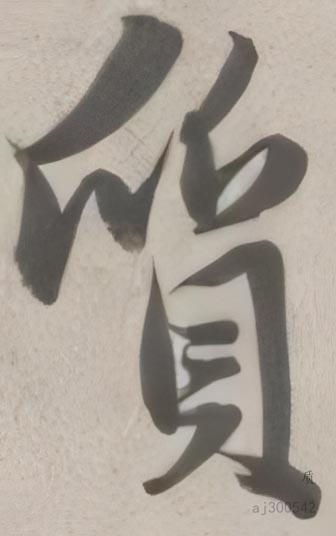 質
质
aj300542